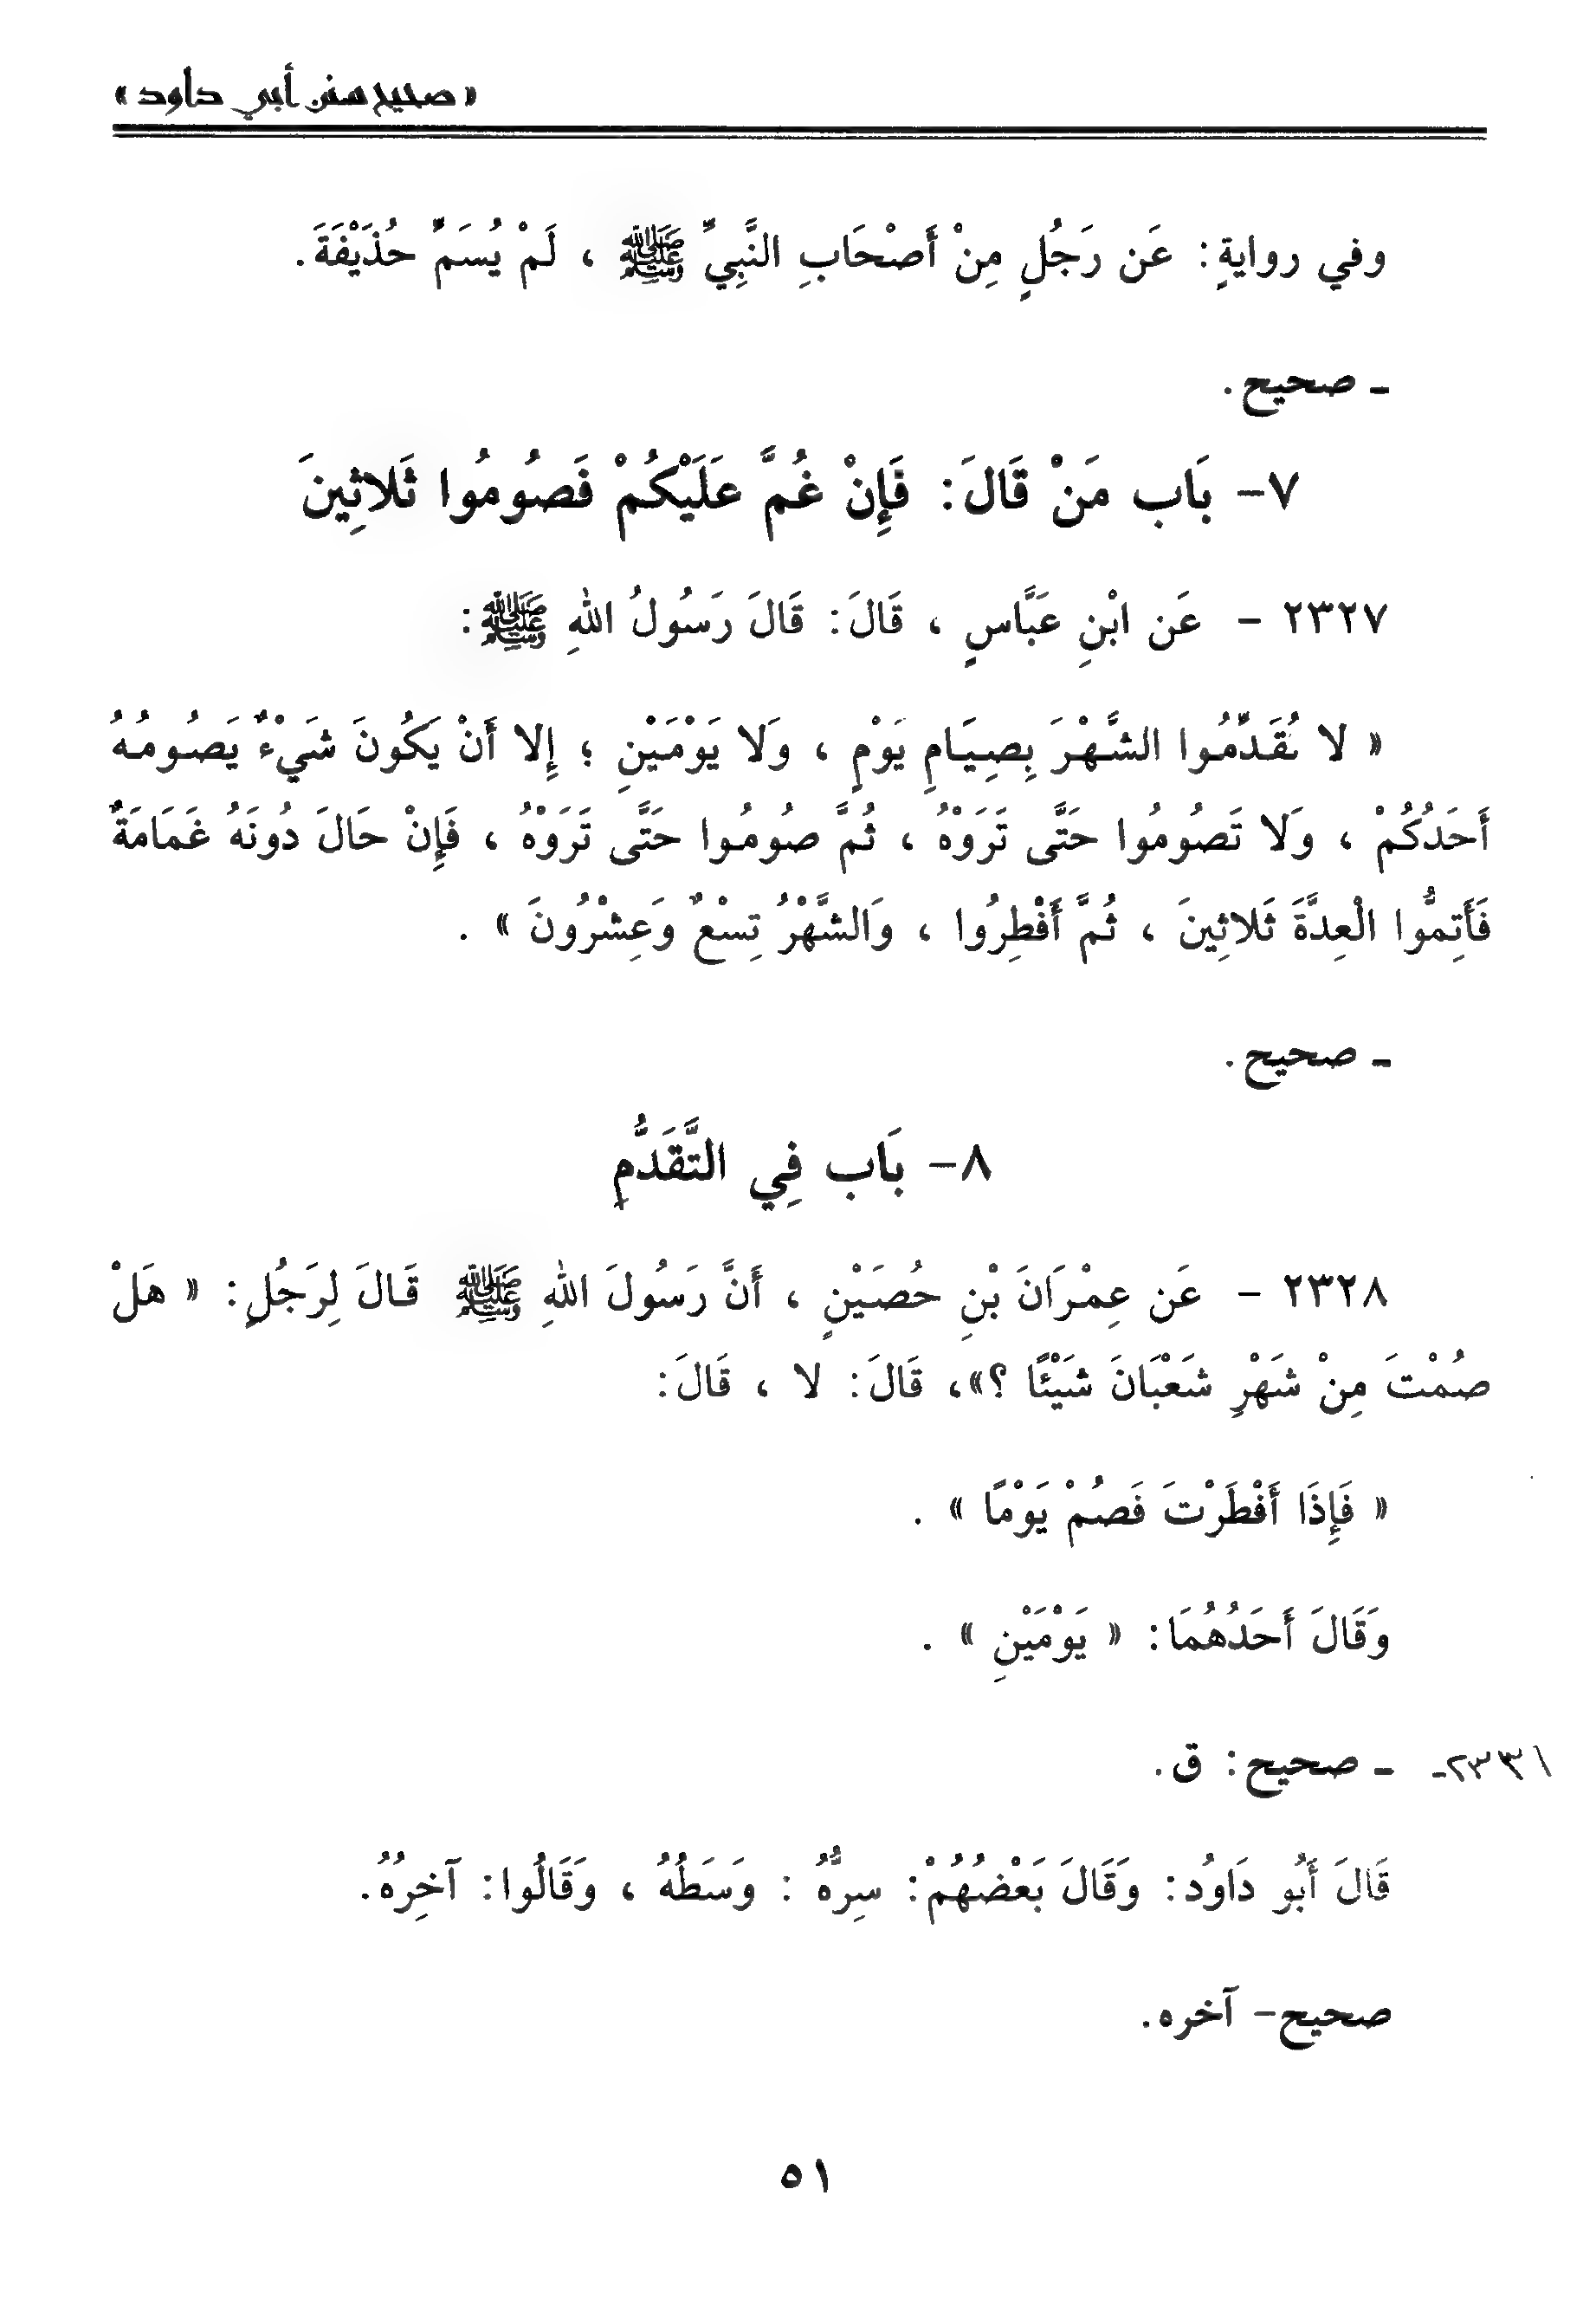 « صحيح سنن أبي داود »
وفي روايةٍ: عَن رَجُلٍ مِنْ أَصْحَابِ النَّبِيِّ ﷺ ، لَمْ يُسَمِّ حُذَيْفَةَ.
ـ صحيح.
٧- بَاب مَنْ قَالَ: فَإِنْ غُمَّ عَلَيْكُمْ فَصُومُوا ثَلاثِينَ
٢٣٢٧ - عَن ابْنِ عَبَّاسٍ ، قَالَ: قَالَ رَسُولُ اللهِ ﷺ:
« لا تُقَدِّمُوا الشَّهْرَ بِصِيَامِ يَوْمٍ ، وَلا يَوْمَيْنِ ؛ إِلا أَنْ يَكُونَ شَيْءٌ يَصُومُهُ
أَحَدُكُمْ ، وَلا تَصُومُوا حَتَّى تَرَوْهُ ، ثُمَّ صُومُوا حَتَّى تَرَوْهُ ، فَإِنْ حَالَ دُونَهُ غَمَامَةٌ
فَأَتِمُّوا الْعِدَّةَ ثَلاثِينَ ، ثُمَّ أَفْطِرُوا ، وَالشَّهْرُ تِسْعٌ وَعِشْرُونَ » .
ـ صحيح.
٨- بَاب فِي التَّقَدُّمِ
٢٣٢٨ - عَن عِمْرَانَ بْنِ حُصَيْنٍ ، أَنَّ رَسُولَ اللهِ ﷺ قَالَ لِرَجُلٍ: « هَلْ
صُمْتَ مِنْ شَهْرِ شَعْبَانَ شَيْئًا ؟»، قَالَ: لا ، قَالَ:
« فَإِذَا أَفْطَرْتَ فَصُمْ يَوْمًا » .
وَقَالَ أَحَدُهُمَا: « يَوْمَيْنِ » .
٢٣٣١- ـ صحيح: ق.
قَالَ أَبُو دَاوُد: وَقَالَ بَعْضُهُمْ: سِرُّهُ : وَسَطُهُ ، وَقَالُوا: آخِرُهُ.
صحيح- آخره.
٥١